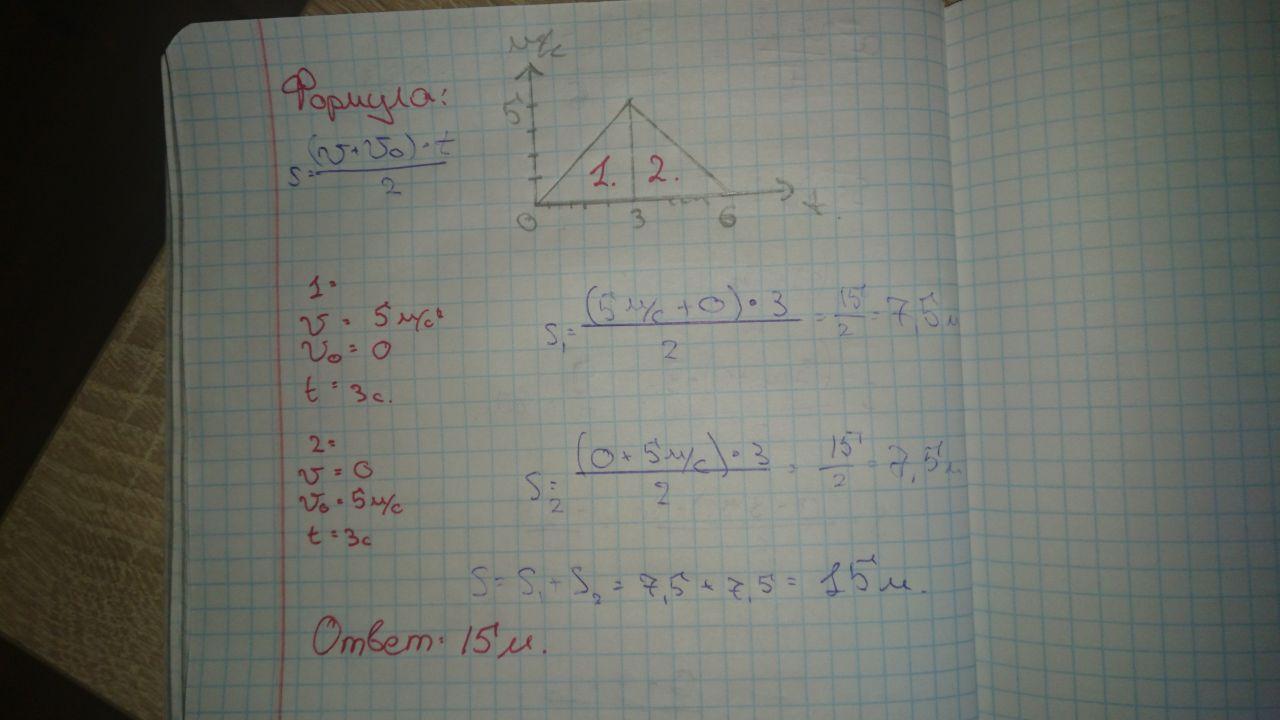 Формула:
S = (v + v₀) · t / 2
м/с
5
1. 2.
0 3 6 t
1.
v = 5 м/с
v₀ = 0
t = 3с.
S₁ = (5 м/с + 0) · 3 / 2 = 15/2 = 7,5 м
2.
v = 0
v₀ = 5 м/с
t = 3с
S₂ = (0 + 5 м/с) · 3 / 2 = 15/2 = 7,5 м
S = S₁ + S₂ = 7,5 + 7,5 = 15 м.
Ответ: 15 м.